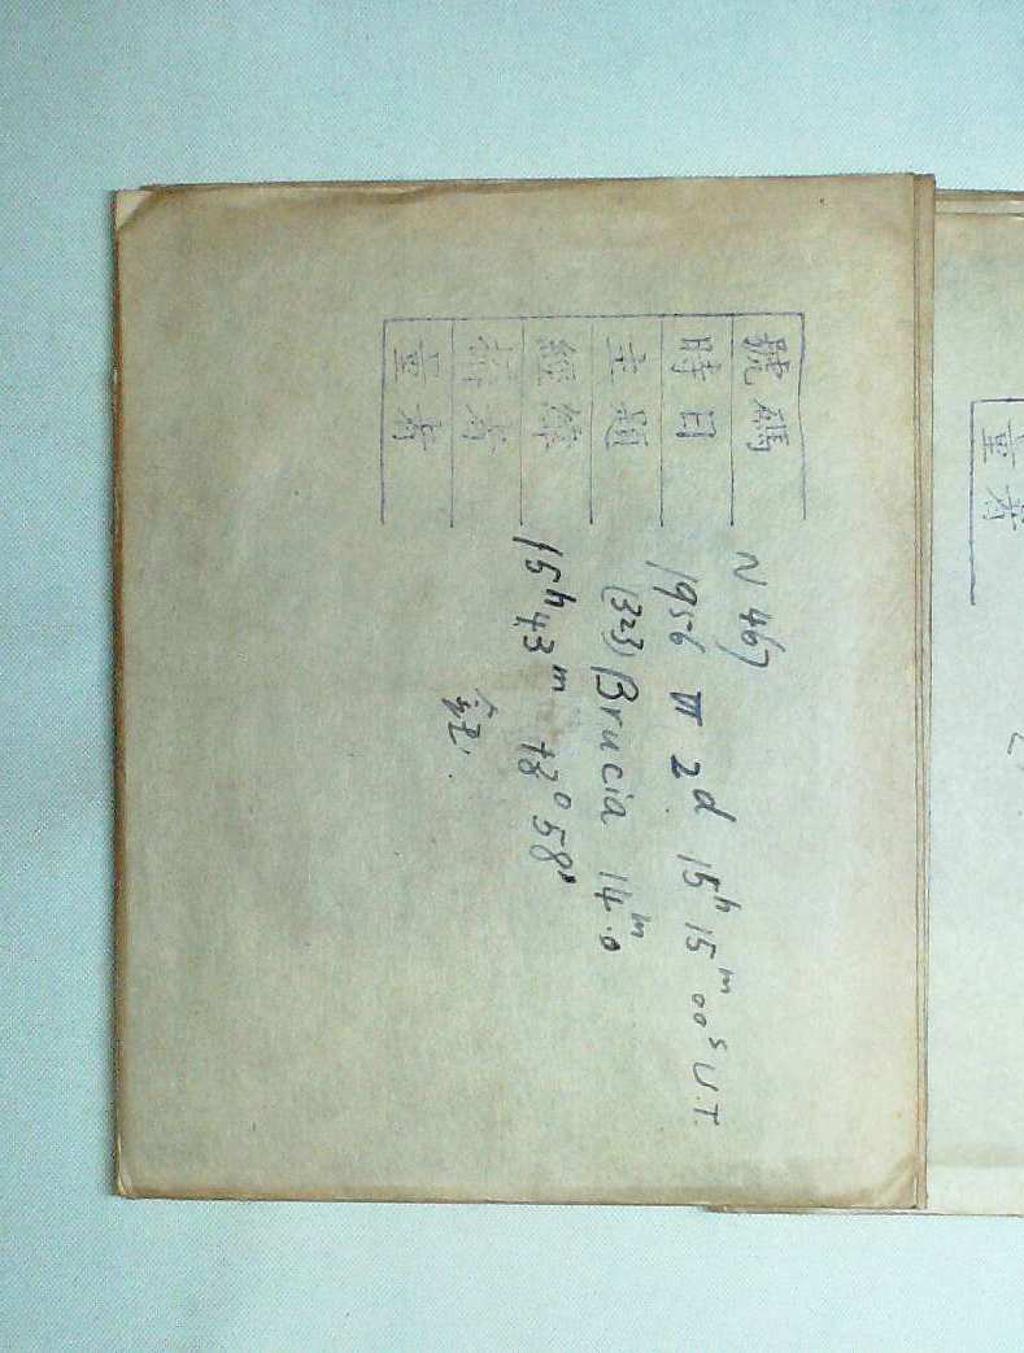 號碼 N 467
時日 1956 VI 2d 15h 15m 00s U.T.
主題 (323) Brucia 14m.0
經緯 15h43m +8°58'
攝者
量者
量者